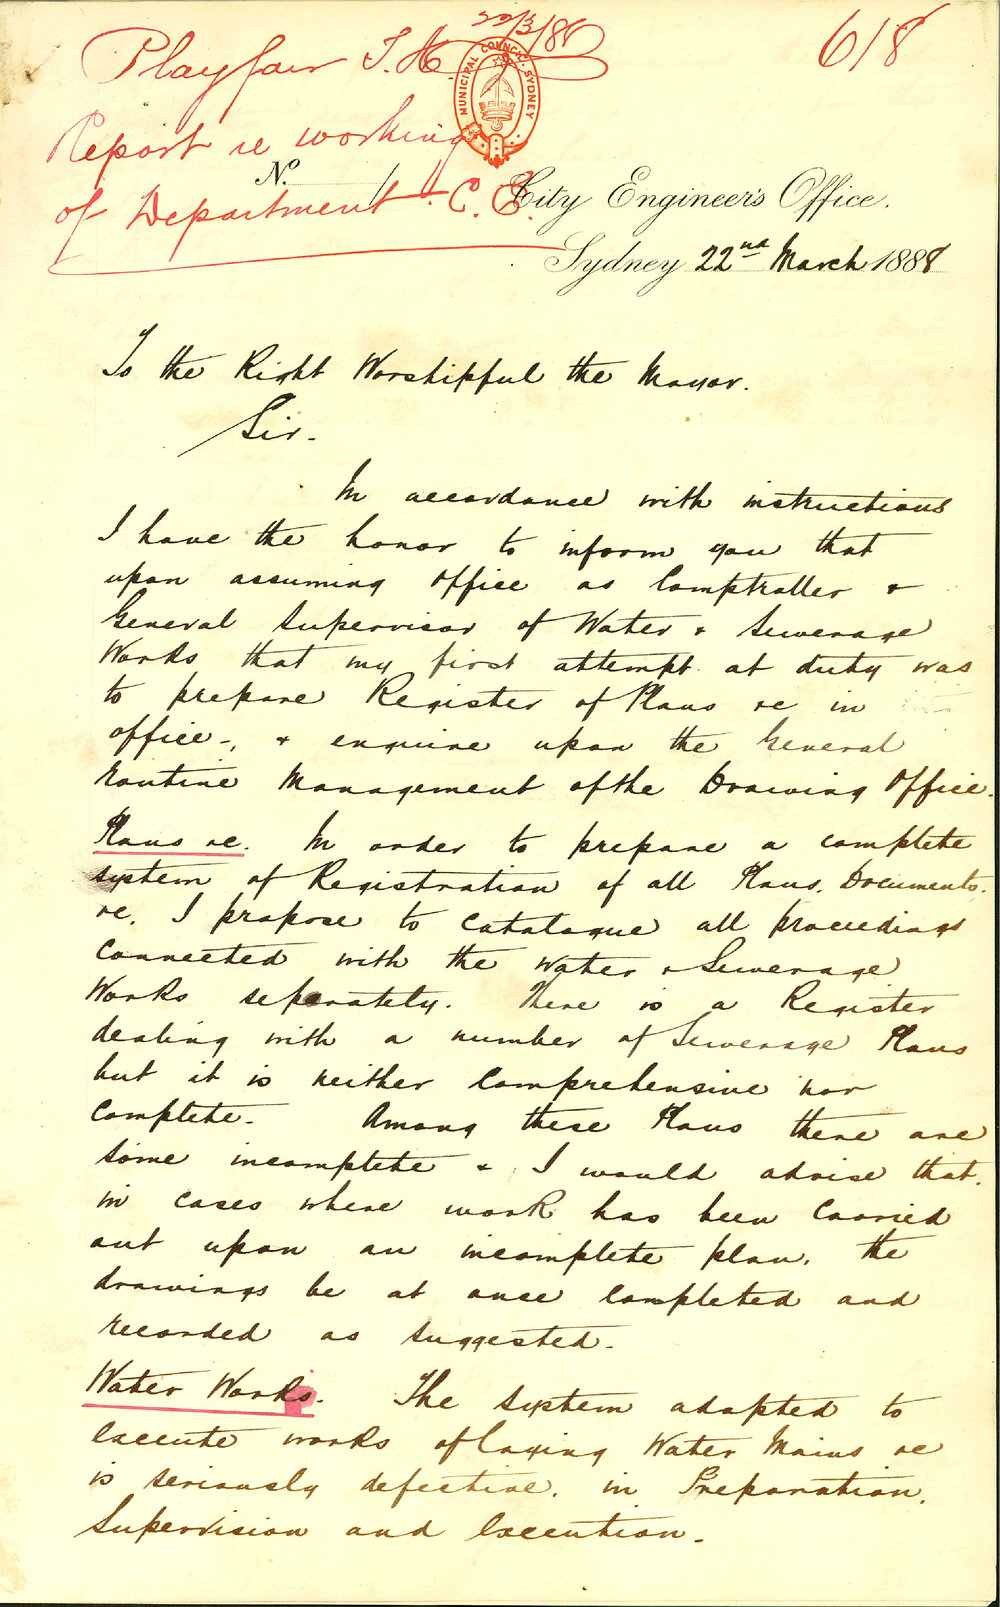 22/3/88
618
Playfair T. H.
MUNICIPAL COUNCIL SYDNEY
Report re working
No.
of Department. C. E.
City Engineer's Office.
Sydney 22nd March 1888
To the Right Worshipful the Mayor.
Sir.
In accordance with instructions
I have the honor to inform you that
upon assuming office as Comptroller &
General Supervisor of Water & Sewerage
Works that my first attempt at duty was
to prepare Register of Plans &c in
office -, & enquire upon the General
Routine Management of the Drawing Office.
Plans &c. In order to prepare a complete
system of Registration of all Plans, Documents,
&c. I propose to catalogue all proceedings
connected with the water & Sewerage
Works separately. There is a Register
dealing with a number of Sewerage Plans
but it is neither comprehensive nor
complete. Among these Plans there are
some incomplete & I would advise that.
in cases where work has been carried
out upon an incomplete plan, the
drawings be at once completed and
recorded as suggested.
Water Works. The system adopted to
execute works of laying Water Mains &c
is seriously defective, in Preparation,
Supervision and Execution.